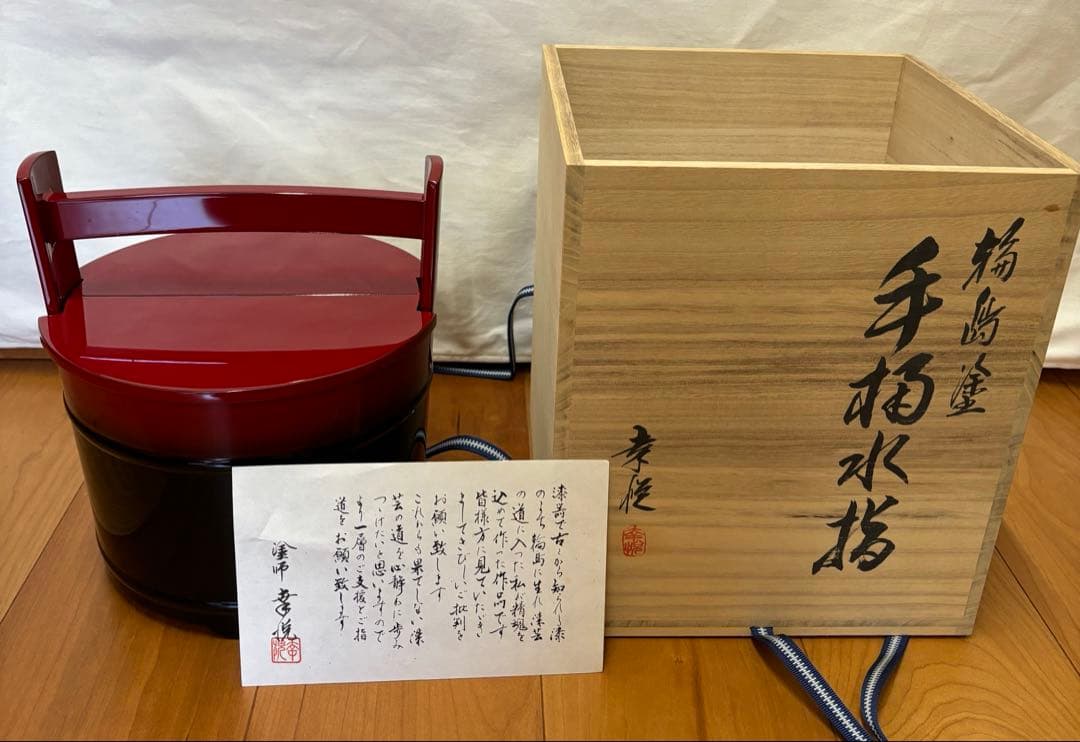 輪島塗
手桶水指
幸悦
漆芸で古くから知られし漆
のまち輪島に生れ漆芸
の道に入った私が精魂を
込めて作った作品です
皆様方に見ていただき
ましてきびしいご批判を
お願い致します
これからも果てしない漆
芸の道を心静かに歩み
つづけたいと思いますので
より一層のご支援とご指
道をお願い致します
塗師 幸悦